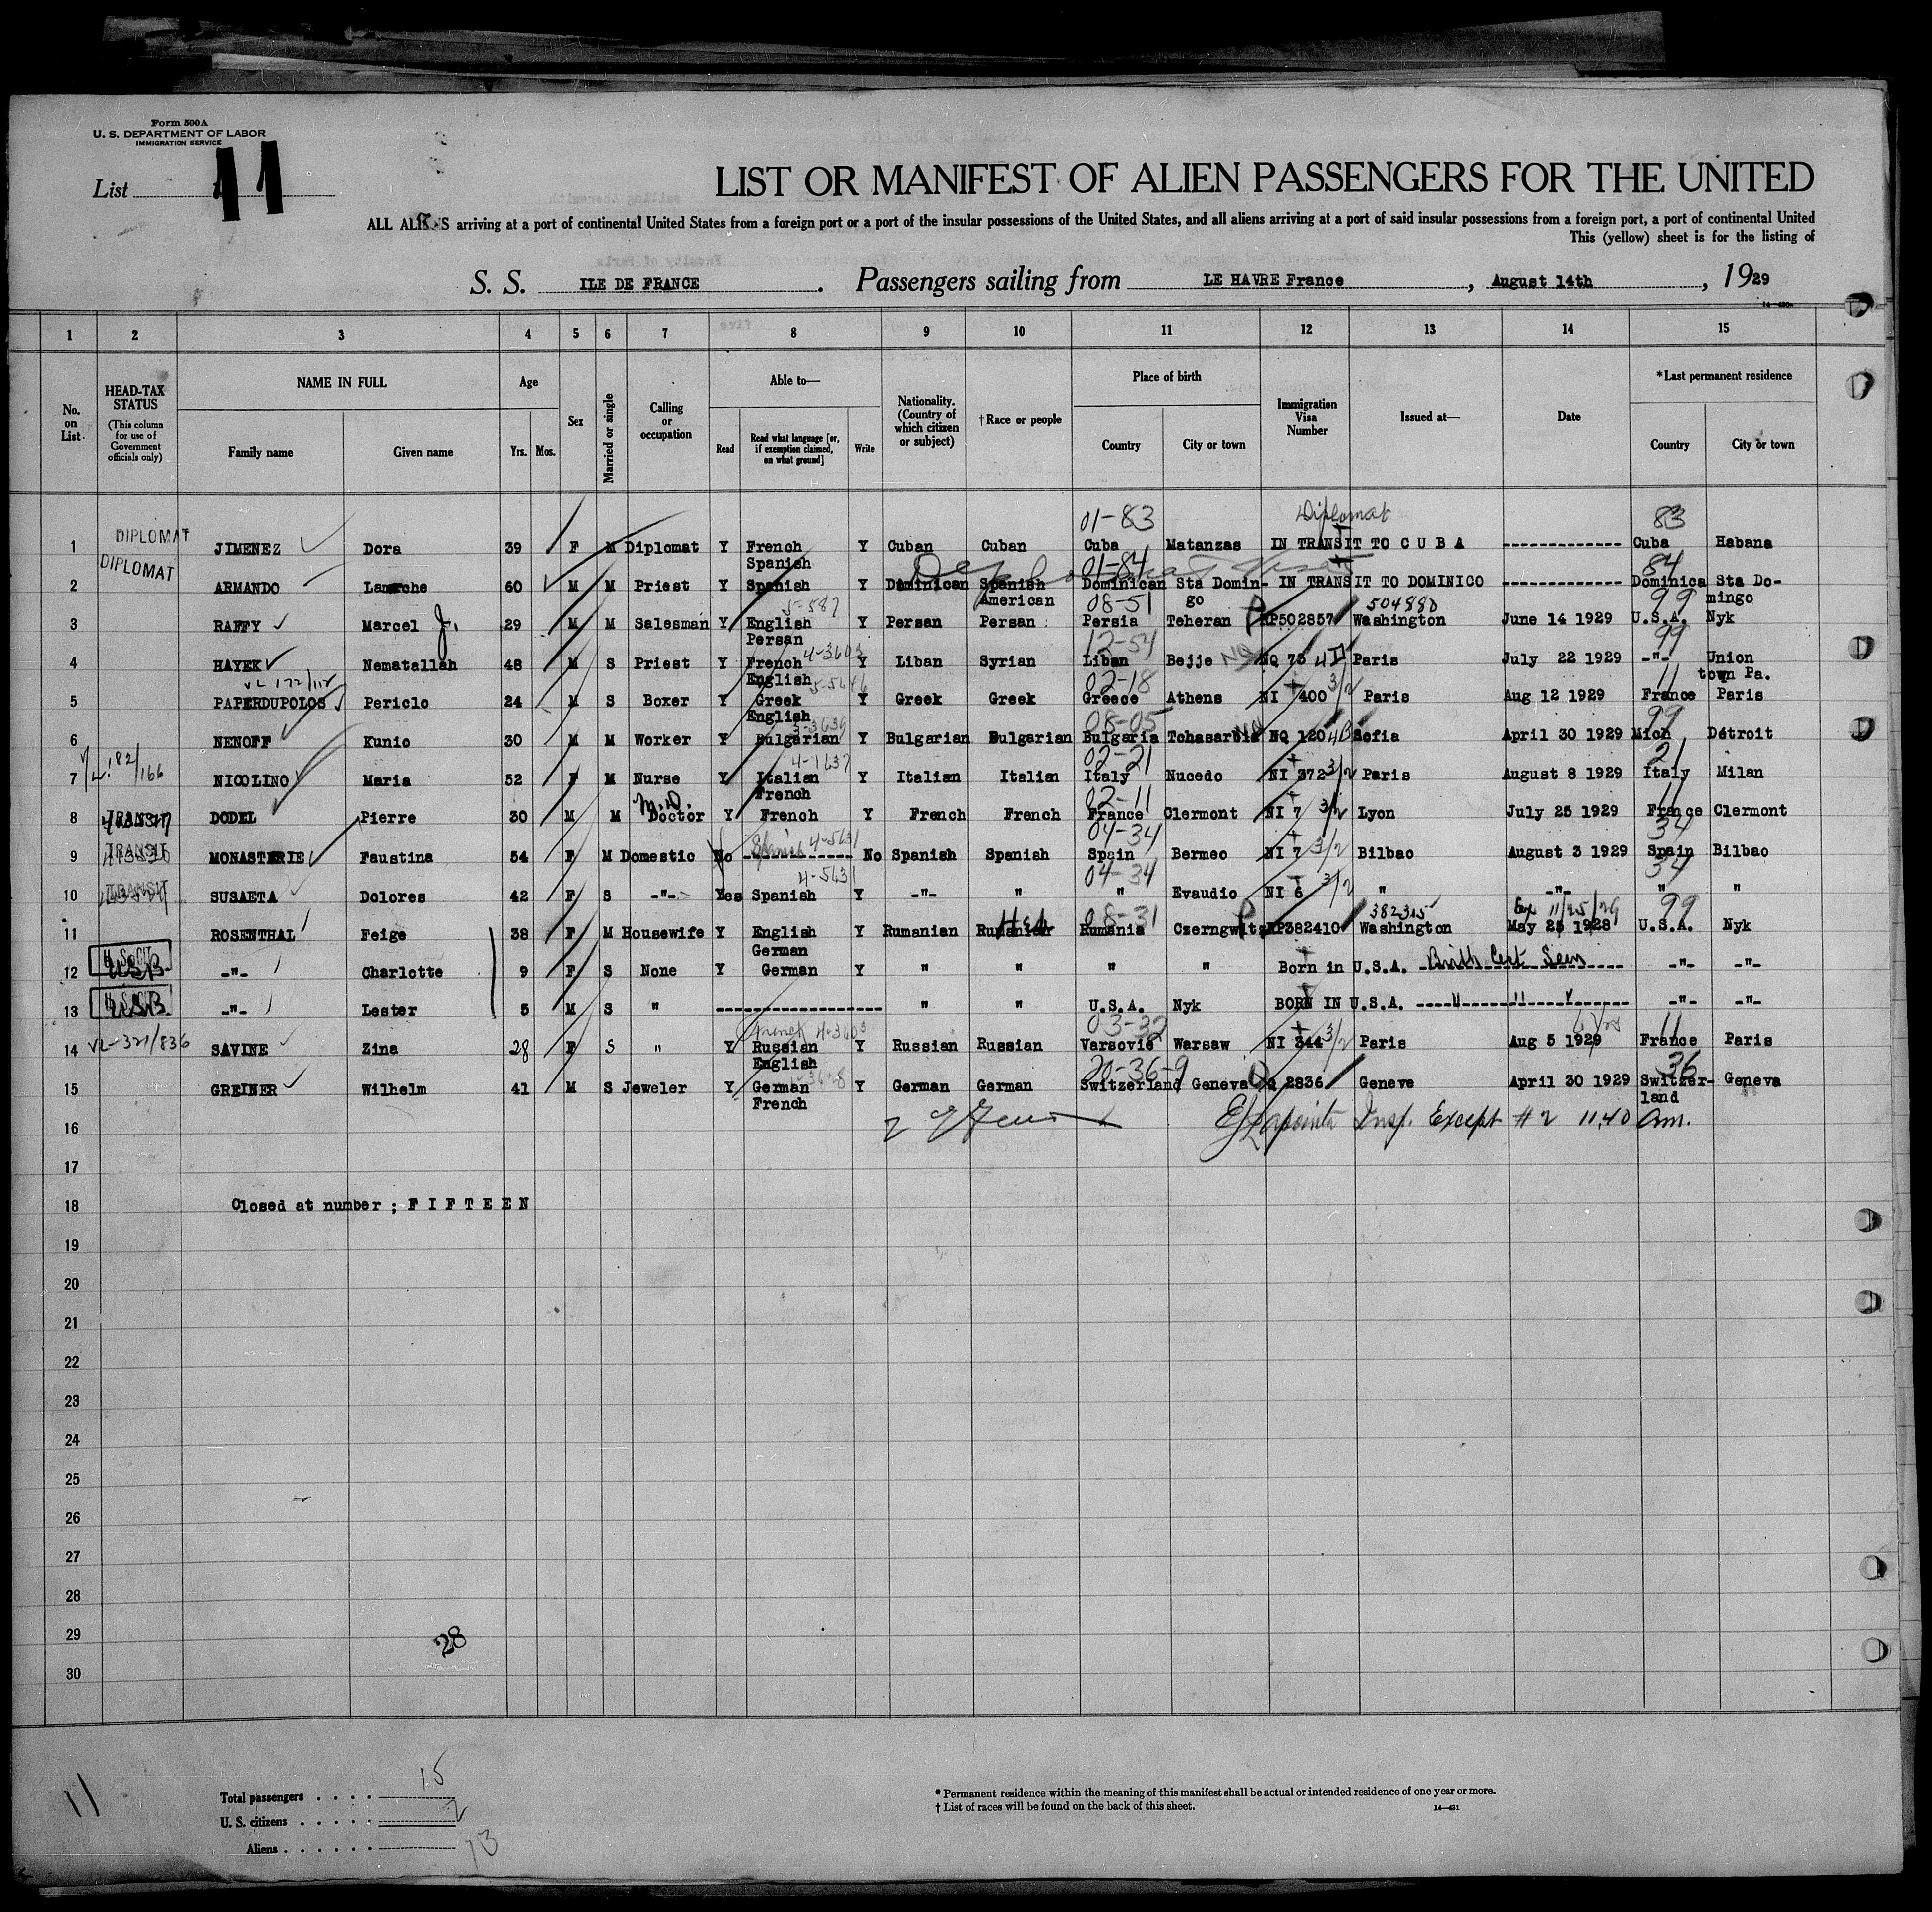 Form 500A
U. S. DEPARTMENT OF LABOR
IMMIGRATION SERVICE
List 11
LIST OR MANIFEST OF ALIEN PASSENGERS FOR THE UNITED
ALL ALIENS arriving at a port of continental United States from a foreign port or a port of the insular possessions of the United States, and all aliens arriving at a port of said insular possessions from a foreign port, a port of continental United
This (yellow) sheet is for the listing of
S. S. ILE DE FRANCE. Passengers sailing from LE HAVRE France, August 14th, 1929
1 2 3 4 5 6 7 8 9 10 11 12 13 14 15
No. on List
HEAD-TAX STATUS (This column for use of Government officials only)
NAME IN FULL
Family name Given name
Age
Yrs. Mos.
Sex
Married or single
Calling or occupation
Able to—
Read Read what language [or, if exemption claimed, on what ground] Write
Nationality. (Country of which citizen or subject)
†Race or people
Place of birth
Country City or town
Immigration Visa Number
Issued at—
Date
*Last permanent residence
Country City or town
01-83 Diplomat 83
1 DIPLOMAT JIMENEZ Dora 39 F M Diplomat Y French Y Cuban Cuban Cuba Matanzas IN TRANSIT TO C U B A ------------- Cuba Habana
Spanish 01-84 84
2 DIPLOMAT ARMANDO Lamarche 60 M M Priest Y Spanish Y Dominican Spanish Dominican Sta Domin- IN TRANSIT TO DOMINICO ------------- Dominica Sta Do-
American go mingo
5-587 08-51 504880 99
3 RAFFY Marcel J. 29 M M Salesman Y English Y Persan Persan Persia Teheran RP502857 Washington June 14 1929 U.S.A. Nyk
Persan 12-54 99
4 HAYEK Nematallah 48 M S Priest Y French 4-3603 Y Liban Syrian Liban Bejje NQ 73 4D Paris July 22 1929 -"- Union
English town Pa.
VL 122/112 5-5646 02-18 11
5 PAPERDUPOLOS Periclo 24 M S Boxer Y Greek Y Greek Greek Greece Athens NI 400 3/2 Paris Aug 12 1929 France Paris
English 08-05 99
6 NENOFF Kunio 30 M M Worker Y Bulgarian Y Bulgarian Bulgarian Bulgaria Tchasarbia NQ 120 4B Sofia April 30 1929 Mich Détroit
182/166 4-1637 02-21 21
7 NICOLINO Maria 52 F M Nurse Y Italian Y Italian Italian Italy Nucedo NI 372 3/2 Paris August 8 1929 Italy Milan
French M.D. 02-11 11
8 TRANSIT DODEL Pierre 30 M M Doctor Y French Y French French France Clermont NI 7 3/2 Lyon July 25 1929 France Clermont
Spanish 4-5631 04-34 34
9 TRANSIT MONASTERIE Faustina 54 F M Domestic No ------------- No Spanish Spanish Spain Bermeo NI 7 3/2 Bilbao August 3 1929 Spain Bilbao
4-5631 04-34 34
10 TRANSIT SUSAETA Dolores 42 F S -"- Yes Spanish Y -"- " " Evaudio NI 6 3/2 " -"- " "
Heb 08-31 382315 Exp 11/25/29 99
11 ROSENTHAL Feige 38 F M Housewife Y English Y Rumanian Rumanian Rumania Czerngwitz RP382410 Washington May 25 1928 U.S.A. Nyk
German
12 U.S. CIT. USB -"- Charlotte 9 F S None Y German Y " " " " Born in U.S.A. Birth Cert Seen -"- -"-
13 U.S. CIT. USB -"- Lester 5 M S " ------------------ " " U.S.A. Nyk BORN IN U.S.A. ---- " -- " -- " -- -"- -"-
French 4-3603 03-32 11
14 VL-321/836 SAVINE Zina 28 F S " Y Russian Y Russian Russian Varsovie Warsaw NI 344 3/2 Paris Aug 5 1929 France Paris
English 20-36-9 36
15 GREINER Wilhelm 41 M S Jeweler Y German Y German German Switzerland Geneva Q 2836 Geneve April 30 1929 Switzer- Geneva
French land
16 Insp. Except # 2 11,40 am.
17
18 Closed at number ; F I F T E E N
19
20
21
22
23
24
25
26
27
28
29
28
30
11
Total passengers . . . . 15
U. S. citizens . . . . . 2
Aliens . . . . . . 13
* Permanent residence within the meaning of this manifest shall be actual or intended residence of one year or more.
† List of races will be found on the back of this sheet. 14—431